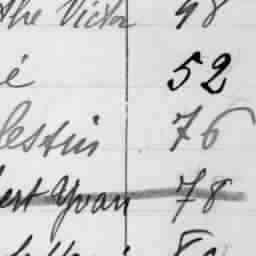 the Victor 48
é 52
lestin 76
ert Yvan 78